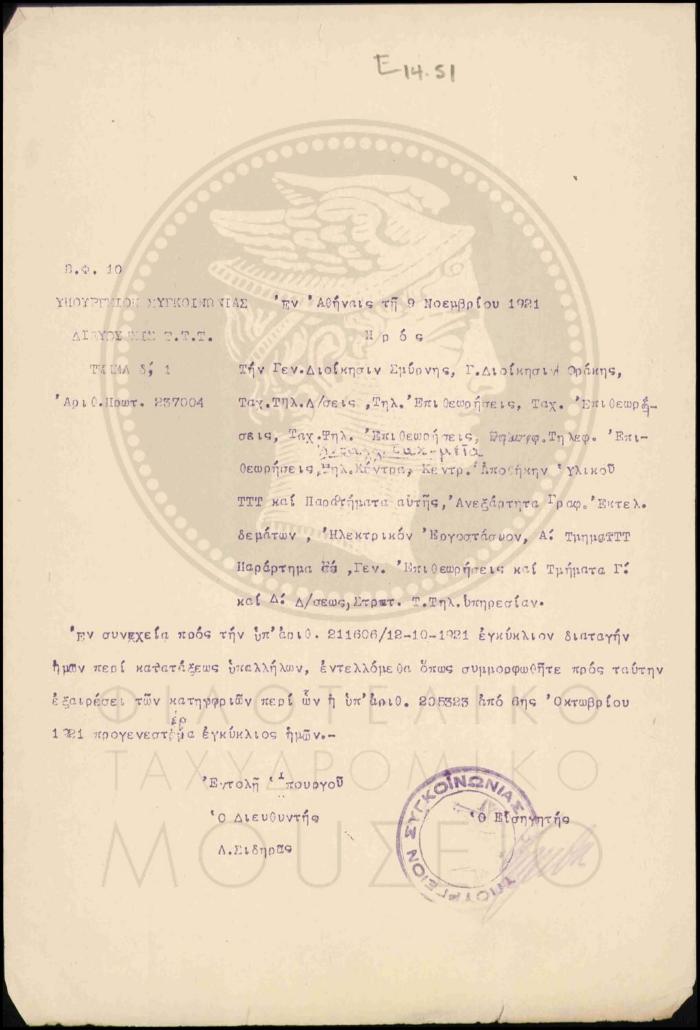 E 14.51
Β.Φ. 10
ΥΠΟΥΡΓΕΙΟΝ ΣΥΓΚΟΙΝΩΝΙΑΣ Ἐν Ἀθήναις τῇ 9 Νοεμβρίου 1921
ΔΙΕΥΘΥΝΣΙΣ Τ.Τ.Τ. Π ρ ό ς
ΤΜΗΜΑ δ; 1 Τήν Γεν.Διοίκησιν Σμύρνης, Γ.Διοίκησιν Θράκης,
Ἀριθ.Πρωτ. 237004 Ταχ.Τηλ.Δ/σεις ,Τηλ.Ἐπιθεωρήσεις, Ταχ. Ἐπιθεωρή-
σεις, Ταχ.Τηλ. Ἐπιθεωρήσεις, Τηλεφ. Ἐπι-
θεωρήσεις,Τηλ.Κέντρα, Κεντρ.Ἀποθήκην Ὑλικοῦ
ΤΤΤ καί Παραρτήματα αὐτῆς,Ἀνεξάρτητα Γραφ.Ἐκτελ.
δεμάτων, Ἠλεκτρικόν Ἐργοστάσυον, Α; Τμημ.ΤΤΤ
Παράρτημα ,Γεν. Ἐπιθεωρήσεις καί Τμήματα Γ;
καί Δ; Δ/σεως,Στρατ. Τ.Τηλ.ὑπηρεσίαν.
Ἐν συνεχεία πρός τήν ὑπ'ἀριθ. 211606/12-10-1921 ἐγκύκλιον διαταγήν
ἡμῶν περί κατατάξεως ὑπαλλήλων, ἐντελλόμεθα ὅπως συμμορφωθῆτε πρός ταύτην
ἐξαιρέσει τῶν κατηγοριῶν περί ὧν ἡ ὑπ'ἀριθ. 205323 ἀπό 6ης Ὀκτωβρίου
1921 προγενεστέρα ἐγκύκλιος ἡμῶν.-
Ἐντολῇ Ὑπουργοῦ
Ὁ Διευθυντής Ὁ Εἰσηγητής
Λ.Σιδηρᾶς
ΥΠΟΥΡΓΕΙΟΝ ΣΥΓΚΟΙΝΩΝΙΑΣ
ΦΙΛΟΤΕΛΙΚΟ
ΤΑΧΥΔΡΟΜΙΚΟ
ΜΟΥΣΕΙΟ